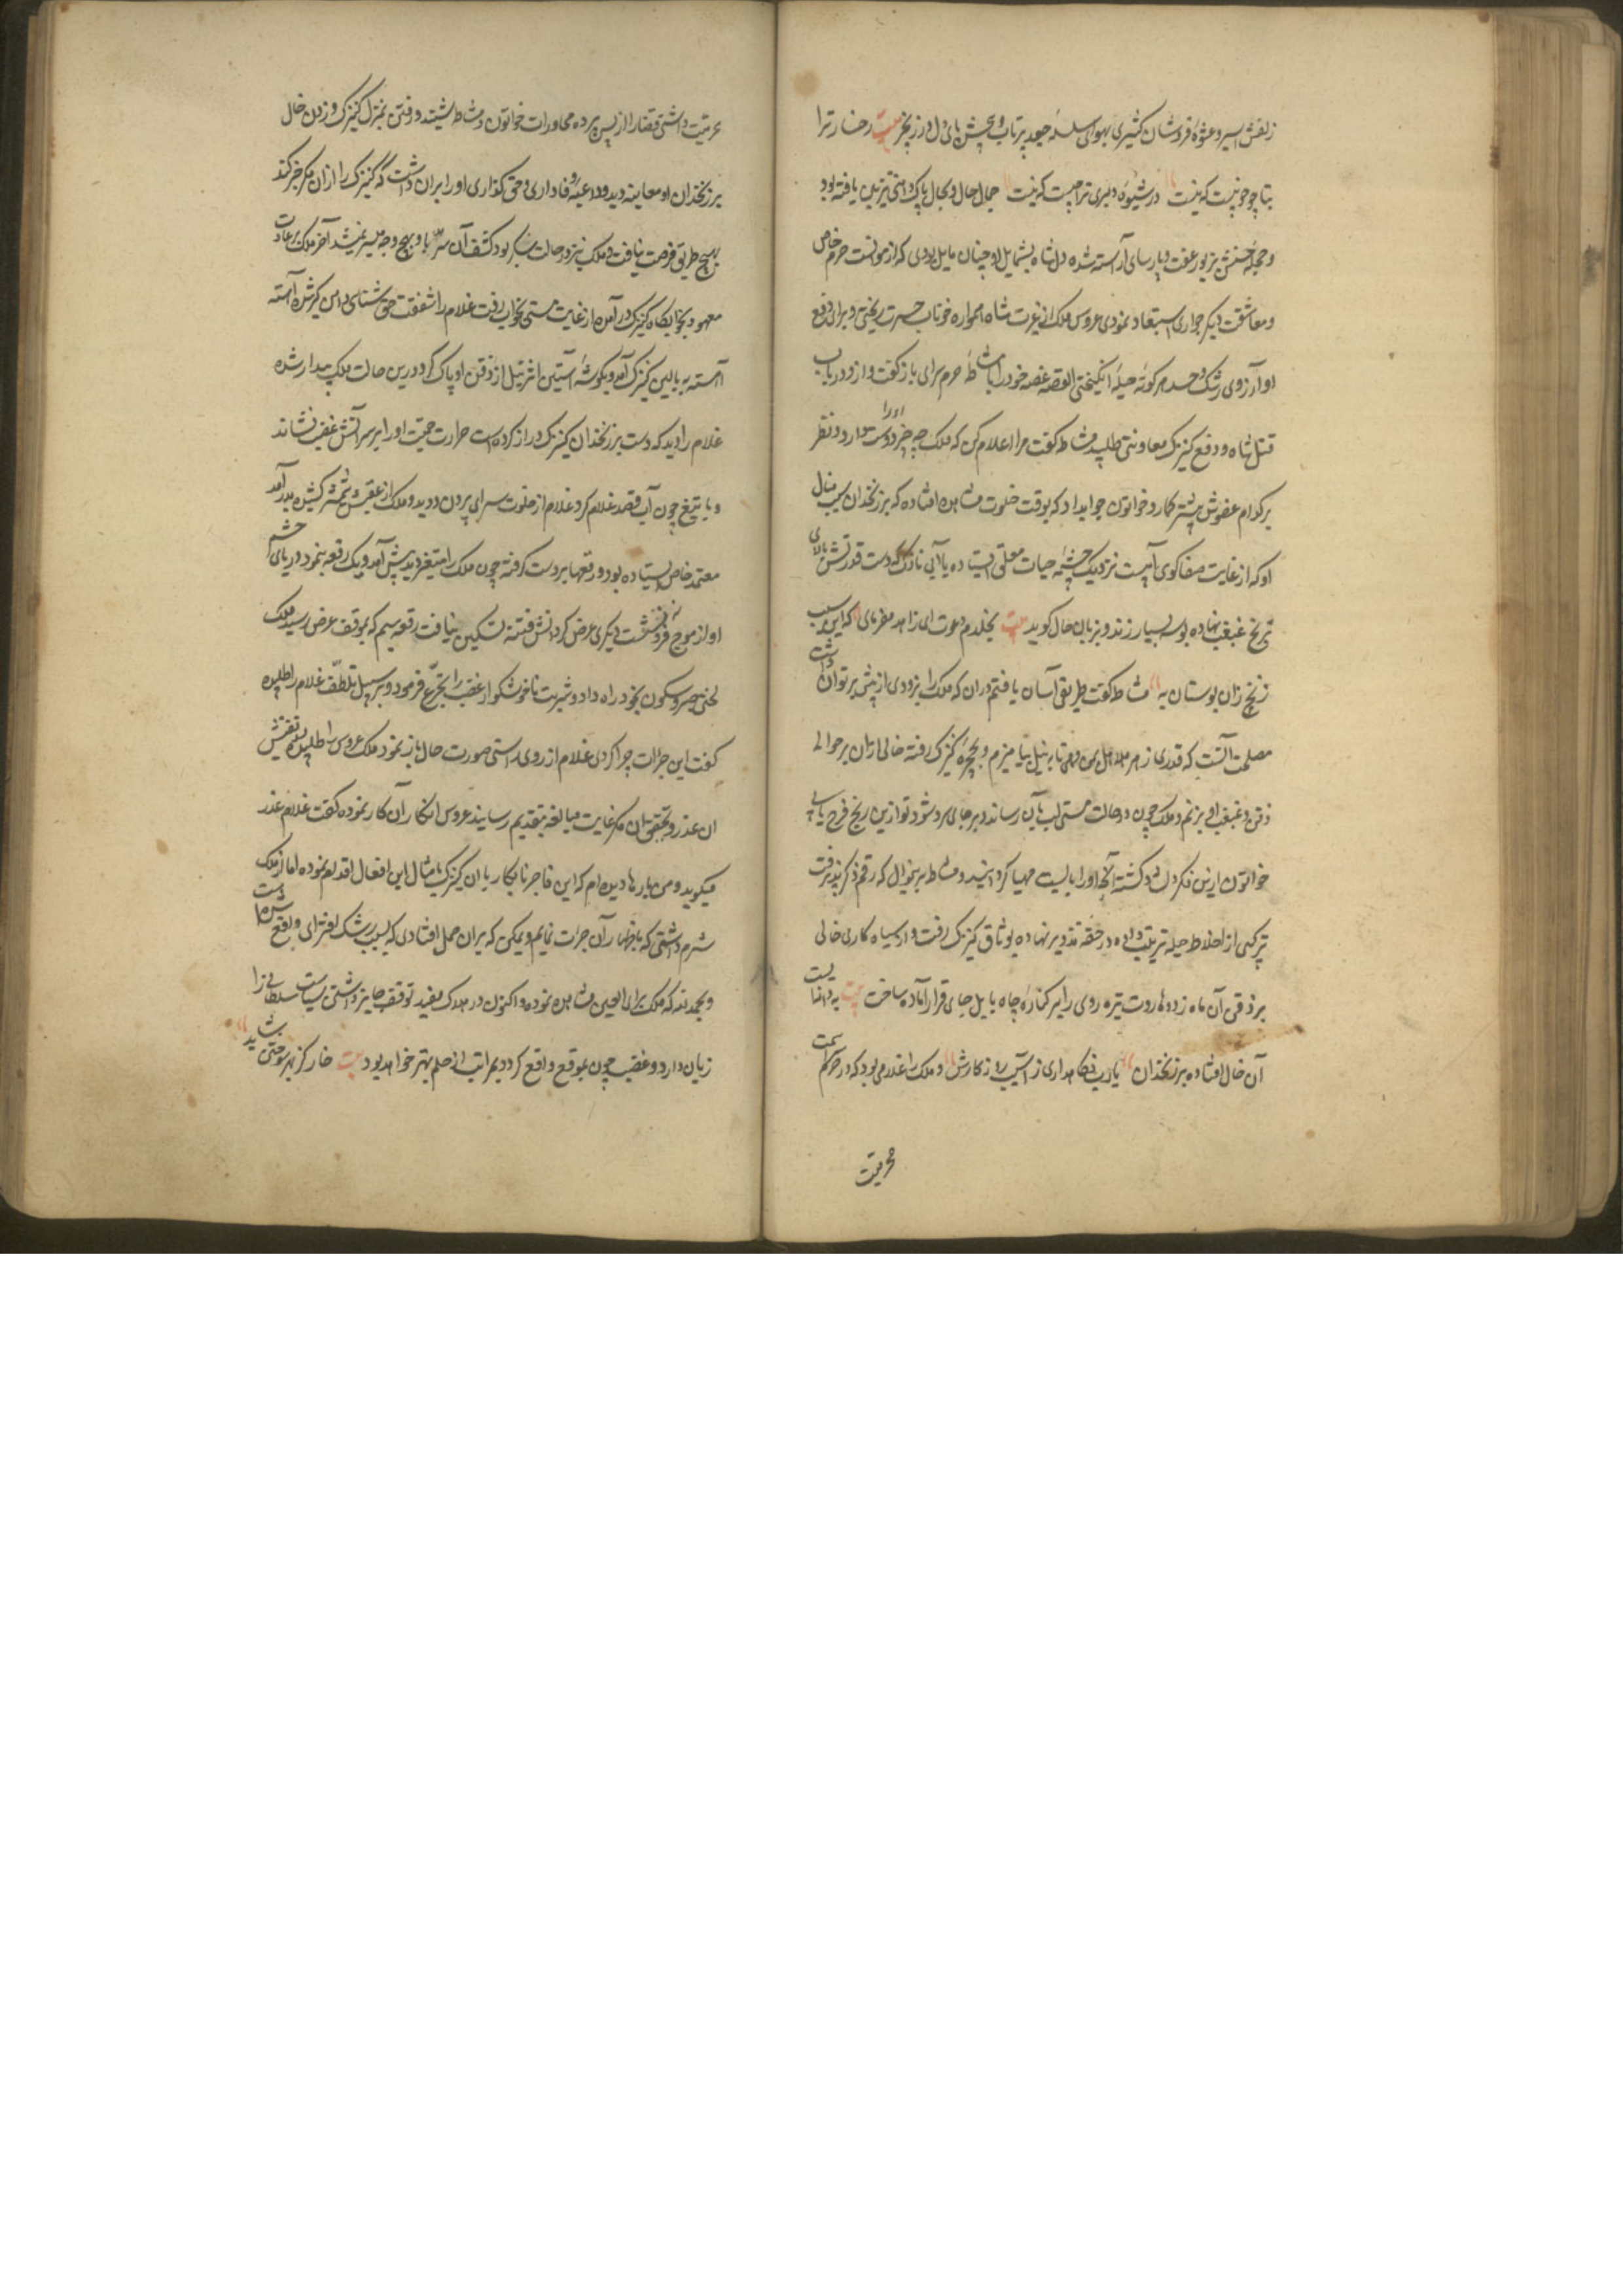 زلفش اسیر و عشوه فروشان کشمیری بهوای سلسله جعد پرتاب و پیچش پای دل در زنجیر بیت رخسار ترا
بتا چو خو نیست که نیست در شیوه دلبری ترا چیست که نیست جمال حال و کمال پاک دامنی تزیین یافته بود
و چهره حسنش بزیور عفت و پارسایی آراسته شده دل شاه بشمایل او چنان مایل بودی که از موانست حرم خاص
و معاشقت دیگر جواری استبعاد نمودی عروس ملک از غیرت شاه همواره خوناب حسرت ریختی و برای دفع
او از روی رشک و حسد هر گونه حیله انگیختی القصه غصه خود را با مشاطه حرم سرای باز گفت و از و در باب
قتل شاه و دفع کنیزک معاونتی طلبید مشاطه گفت مرا اعلام کن که ملک چه چیز او را دوست میدارد و نظر
بر کدام عضوش بیشتر گمارد خواتون جواب داد که بوقت خلوت مشاهده افتاده که بر زنخدان سیب مثال
او که از غایت صفا گویی آبیست نزدیک چشمه حیات معلق ایستاده یا آبی نازک که دست قدرتش بالای
ترنج غبغب نهاده بوسه بسیار زند و بزبان حال گوید بیت بخلدم دعوت ای زاهد مفرمای که این سیب
زنخ زان بوستان به مشاطه گفت طریقی آسان یافتم در آن که ملک را بزودی از پیش بر توان داشت
مصلحت آنست که قدری زهر هلاهل بمن دهی تا با نیل بیامیزم و بحجره کنیزک رفته خالی از آن بر حوالی
ذقن و غبغب او بزنم و ملک چون در حالت مستی لب بآن رساند بر جای سرد شود و تو ازین رنج فرج یابی
خواتون ازین فکر دل خوش گشته آنچه او را بایست مهیا گردانید و مشاطه بر منوال که رقم ذکر پذیرفت
ترکیبی از اخلاط حیله ترتیب داده در حقه تزویر نهاده بوثاق کنیزک رفت و از سیاه کاری خالی
بر ذقن آن ماه زد و هاروت تیره روی را بر کناره چاه بابل جای قرار آماده ساخت بیت
آن خال افتاده بر زنخدان یارب نگاهداری ز آسیب روزگارش و ملک را غلامی بود که در حرم سمت
محرمیت
محرمیت داشتی قضا را از پس پرده محاورات خواتون و مشاطه شنیده و رفتن بمنزل کنیزک و زدن خال
بر زنخدان او معاینه دید و داعیه وفاداری و حق گذاری او را بران داشت که کنیزک را از ان مکر خبر کند
بهیچ طریق فرصت نیافت و ملک نیز در حالت سکر بود کشف آن سر با او بهیچ وجه میسر نمیشد آخر ملک بر عادت
معهود بخوابگاه کنیزک درآمده از غایت مستی بخواب رفت غلام را شفقت حق شناسی دامن گیر شده آهسته
آهسته به بالین کنیزک آمد و بگوشه آستین اثر نیل از ذقن او پاک کرد و درین حالت ملک بیدار شده
غلام را دید که دست بر زنخدان کنیزک دراز کرده است حرارت حمیت او را بر سر آتش غضب نشاند
و با تیغ چون آب قصد غلام کرد غلام از خلوت سرای بیرون دوید و ملک از عقبش شمشیر کشیده بدر آمد
معتمد خاص ایستاده بود و رقعها بر دست گرفته چون ملک را متغیر دید پیش آمد و یک رقعه بنمود دریای خشم
او از موج فرو نه نشست دیگری عرض کرد آتش فتنه تسکین نیافت رقعه سیم که بموقف عرض رسید ملک
لختی صبر و سکون بخود راه داد و شربت ناخوشگوار غضب را تجرع فرمود و بر سبیل تلطف غلام را طلبیده
گفت این جرات چرا کردی غلام از روی راستی صورت حال باز نمود ملک عروس را طلبیده تفتیش
ان عذر و تحقیق ان مکر بغایت مبالغه بتقدیم رسانید عروس انکار آن کار نموده گفت غلام عذر
میگوید و من بارها دیده ام که این فاجر نابکار با ان کنیزک بامثال این افعال اقدام نموده اما از ملک
شرم داشتم که باظهار آن جرات نمایم و یمکن که بران حمل افتادی که بسبب رشک افترای واقع شده است
و بحمد الله که ملک برای العین مشاهده نموده و اکنون در هلاک مفید توقف جایز داشتن سیاست سلطانی را
زیان دارد و غضب چون بموقع واقع گردد بمراتب از حلم بهتر خواهد بود بیت خار کز بهر سوختن باشد